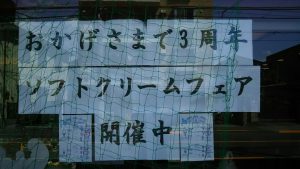 おかげさまで3周年
ソフトクリームフェア
開催中